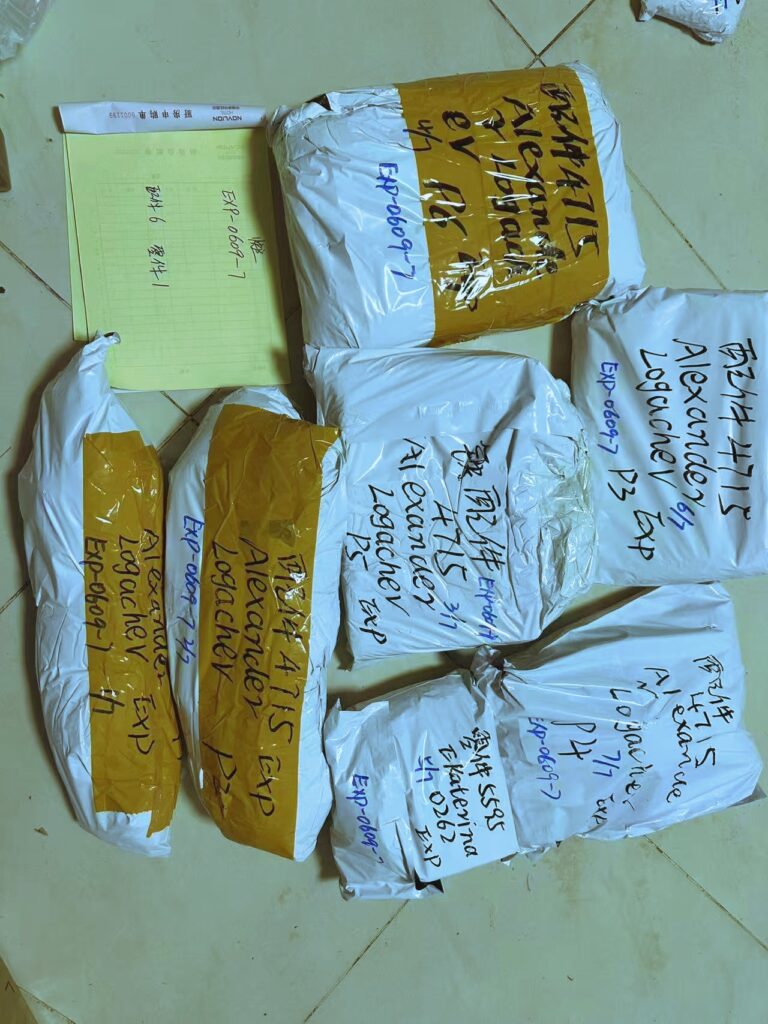 NOVLION
5001199
EXP-0609-7
配件6 整件1
配件4715
Alexande
r Logach
ev P6
4/7
EXP-0609-7
配件4715
Alexander
Logachev
6/7
P3 Exp
EXP-0609-7
配件
4715
3/7
Alexander
Logachev
P5 Exp
配件
4715
Alexande
Logachev
7/7
P4 Exp
EXP-0609-7
整件5595
Ekaterina
0262
EXP
EXP-0609-7
配件4715 Exp
Alexander
Logachev P2
EXP-0609-7 2/7
Alexander
Logachev Exp
Exp-0609-7 1/7